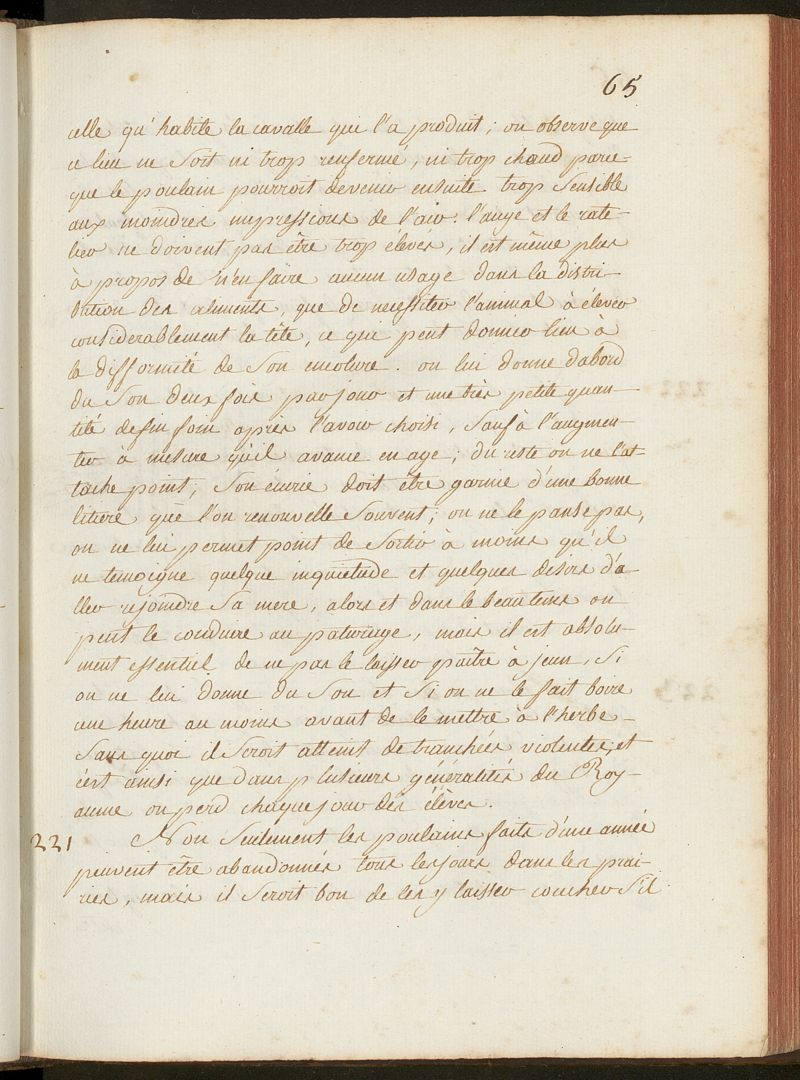 65
celle qu'habite la cavalle qui l'a produit; on observe que
ce lieu ne Soit ni trop renfermé, ni trop chaud parce-
que le poulain pourroit devenir ensuite trop Sensible
aux moindres impressions de l'air. l'auge et le rate-
lier ne doivent pas être trop élevés, il est même plus
à propos de n'en faire aucun usage dans la distri-
bution des aliments, que de necessiter l'animal à élever
considerablement la tête, ce qui peut donner lieu à
la difformité de Son encolure. on lui donne d'abord
du Son deux fois par jour et une très petite quan-
tité de fin foin après l'avoir choisi, Sauf à l'augmen-
ter à mesure qu'il avance en age; du reste on ne l'at-
tache point; Son écurie doit être garnie d'une bonne
litiere que l'on renouvelle Souvent; on ne le panse pas,
on ne lui permet point de Sortir à moins qu'il
ne temoigne quelque inquietude et quelques desirs d'a-
ller rejoindre Sa mere, alors et dans le beau tems on
peut le conduire au paturage, mais il est absolu-
ment essentiel de ne pas le laisser paître à jeun, Si
on ne lui donne du Son et Si on ne le fait boire
une heure au moins avant de le mettre à l'herbe-
Sans quoi il Seroit atteint de tranchées violentes, et
c'est ainsi que dans plusieurs généralités du Roy-
aume on perd chaque jour des élèves.
221 Non Seulement les poulains faits d'une année
peuvent être abandonnés tous les jours dans les prai-
ries, mais il Seroit bon de les y laisser coucher S'il